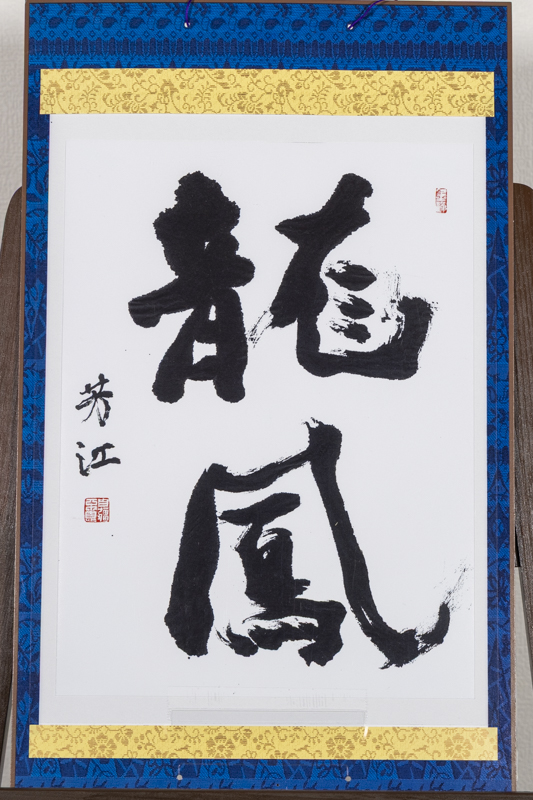 龍
鳳
芳江